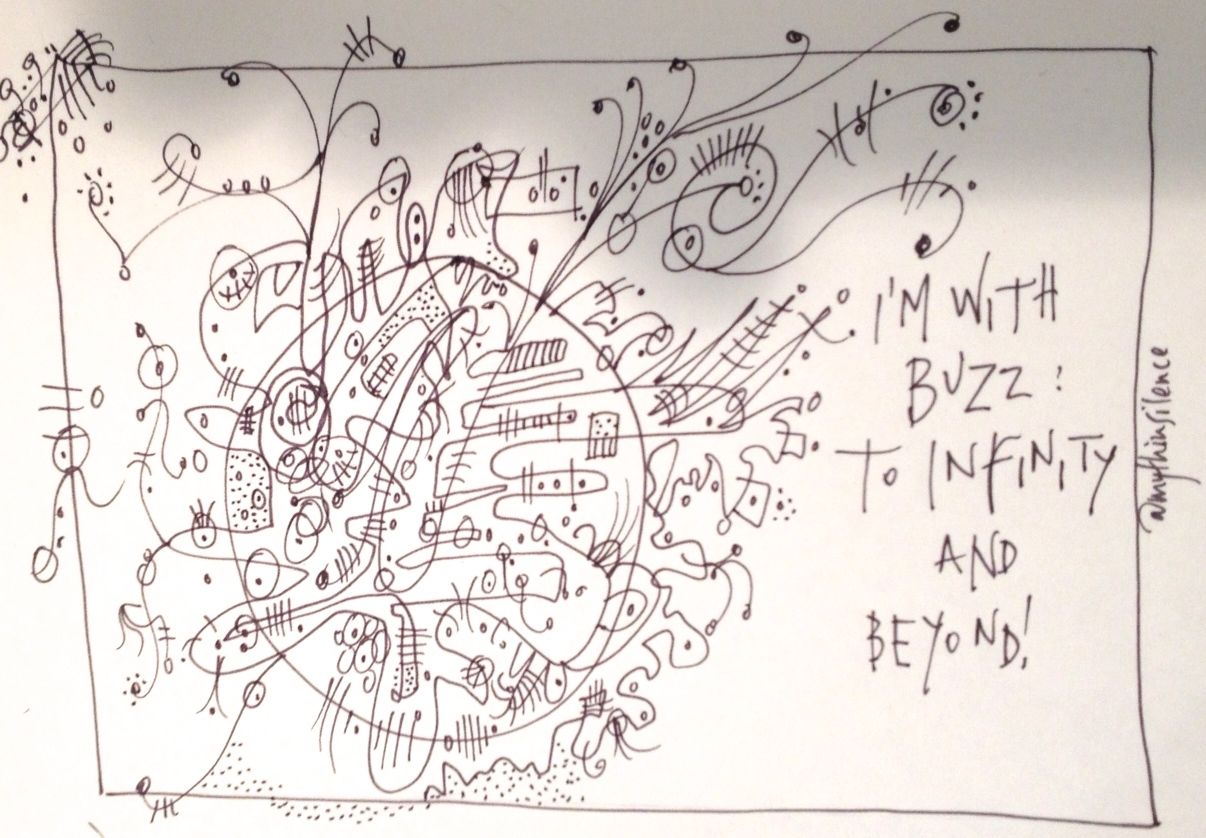 I'M WITH
BUZZ:
TO INFINITY
AND
BEYOND!
@mythingsilence